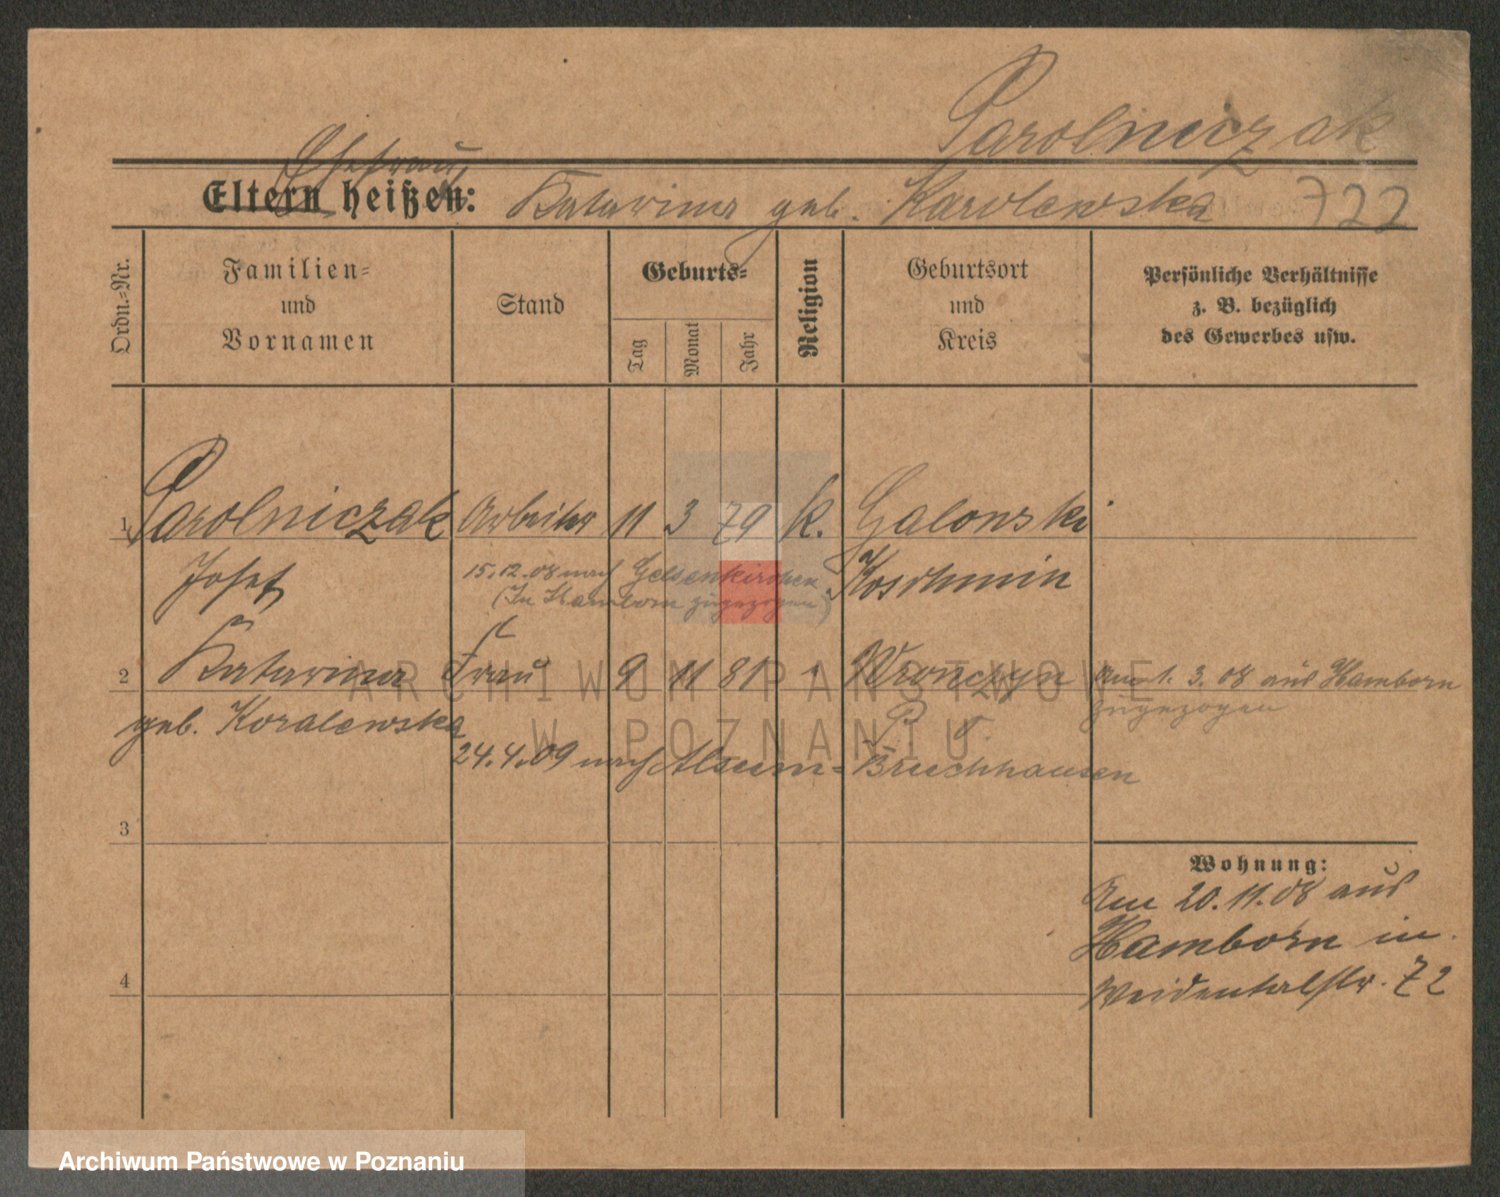 Parolniczak
Ehefrau
Eltern heißen: Katarina geb. Karolewska 722
Ordn.=Nr.
Familien=
und
Vornamen
Stand
Geburts=
Tag
Monat
Jahr
Religion
Geburtsort
und
Kreis
Persönliche Verhältnisse
z. B. bezüglich
des Gewerbes usw.
1 Parolniczak Arbeiter 11 3 79 k. Galonski
Josef Koschmin
15.12.08 nach Gelsenkirchen
(In Hamborn zugezogen)
2 Katarina Frau 9 11 81 " Wronczyn
geb. Koralewska P. O.
Am 1. 3. 08 aus Hamborn
zugezogen
24.4.09 nach Alsum-Bruchhausen
3
4
Wohnung:
Am 20.11.08 aus
Hamborn in
Weidentalstr. 72
ARCHIWUM PAŃSTWOWE
W POZNANIU
Archiwum Państwowe w Poznaniu